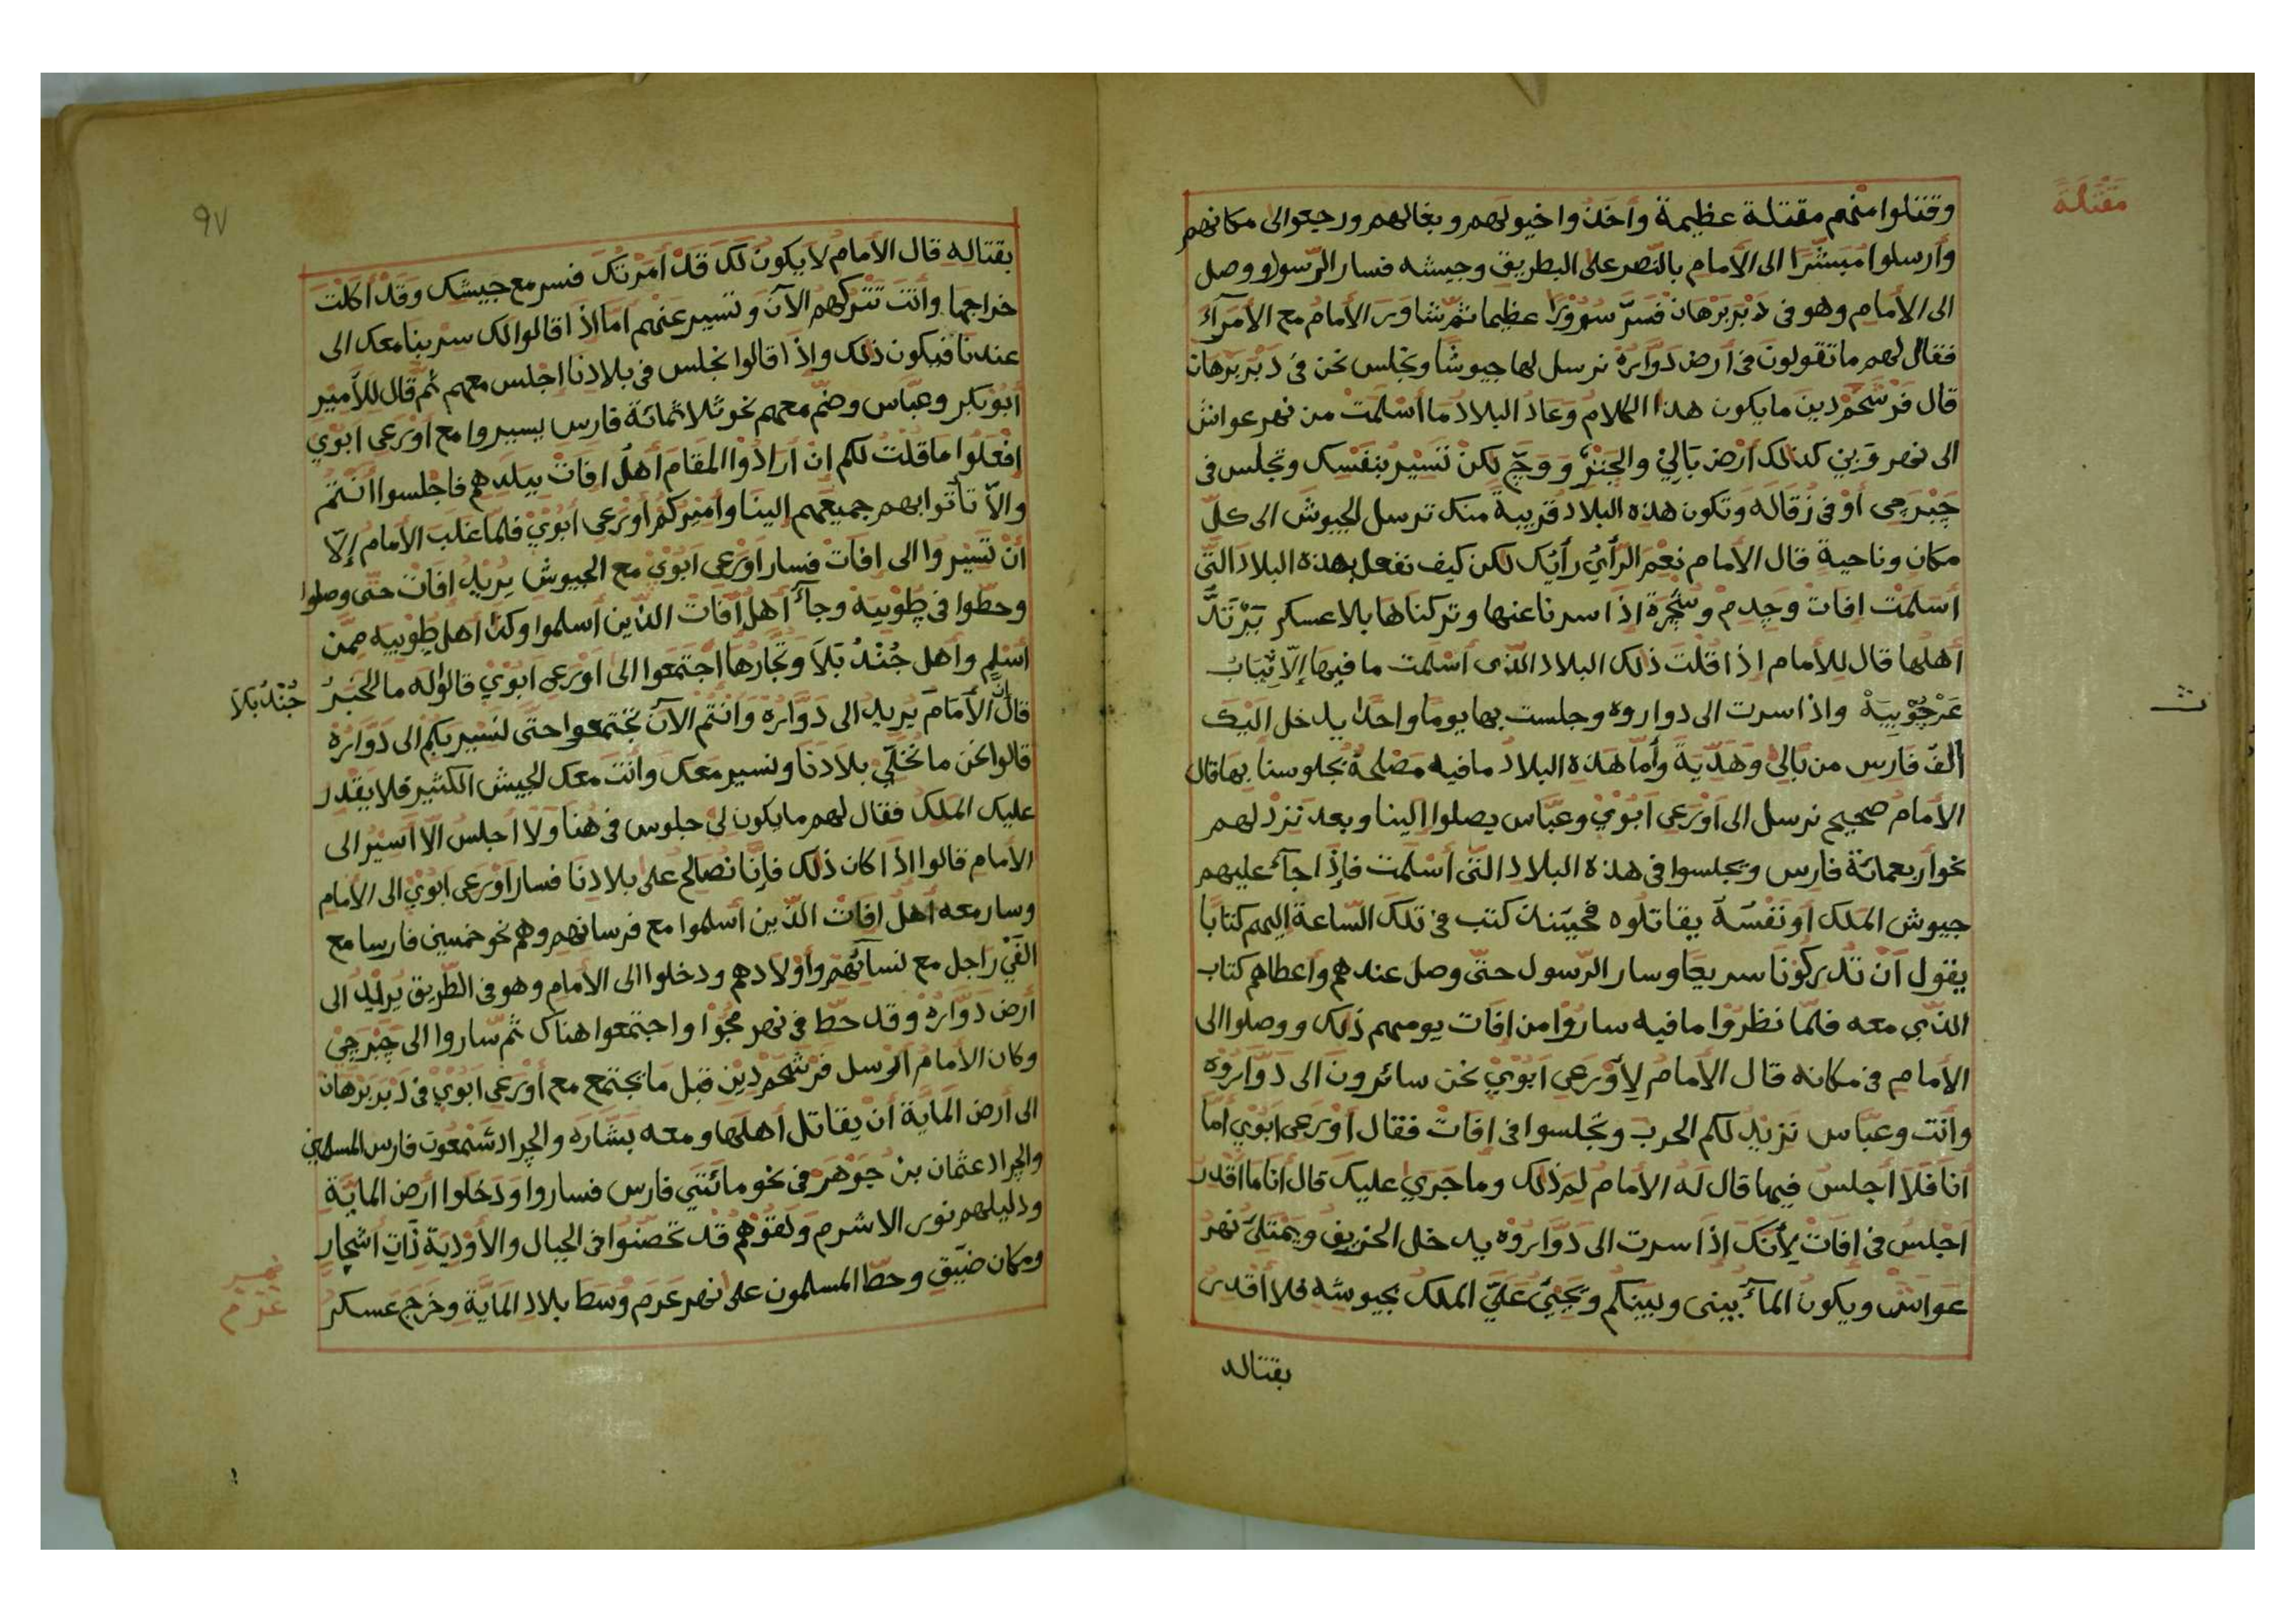 مقتلة
وقتلوا منهم مقتلة عظيمة وأخذوا خيولهم وبغالهم ورجعوا الى مكانهم
وأرسلوا مُبشّرًا الى الأمام بالنّصر على البطريق وجيشه فسار الرّسول ووصل
الى الأمام وهو في دَبْر بَرْهان فَسَرَّ سُرُوْرًا عظيما ثمّ شاور الأمام مع الأمرآء
فقال لهم ما تقولون في أرض دَوَّارُهْ نرسل لها جيوشًا ونجلس نحن في دَبْر بَرْهان
قال فَرْشَحَمْ دِين ما يكون هذا الكلام وعاد البلاد ما أسْلَمَتْ من نهر عواش
الى نهر وَين كذلك أرْض بَالِيْ والجَنْز وَوَجّ لكنْ تَسِيْرُ بنَفْسك وتجلس في
جَبْرَجِى أوْ في زُقَالَه وتكون هذه البلاد قريبةً منك ترسل الجيوش الى كلّ
مكان وناحية قال الأمام نِعْمَ الرّأيُ رأيُك لكن كيف نفعل بهذه البلاد الّتى
أسْلَمَتْ افات وجِدِمْ وشَجَرَة إذا سرنا عنها وتركناها بلا عسكر يَرْتَدّ
أهلها قال للأمام إذا قُلْتَ ذلك البلاد الّذى أسْلمت ما فيها إلّا ثِيَابُ
ث
عَرْجُوْبِيَهْ واذا سرت الى دواروه وجلست بها يومًا واحدًا يدخل اليك
ألفُ فَارِس من بَالِيْ وهَدِيّةَ وأمّا هَذِه البلادُ ما فيه مَصْلحةٌ بجلوسنا بها قال
الأمامُ صحيح نرسل الى أوْرَعِى أبُوْنْ وعبّاس يصلوا إلينا وبعد نَزِدْ لهم
نحو أربعمائة فارس ويجلسوا في هذه البلاد الّتى أسْلَمت فإذا جآء عليهم
جيوش المَلك أو نَفْسَهُ يقاتلُوه فحينئذ كتب في تلك السّاعة إليهم كتابًا
يقول أنْ تُدْركُوْنَا سريعًا وسار الرّسول حتّى وصل عندهم وأعطاهم كتاب
الّذى معه فلمّا نظرُوْا ما فيه سارُوْا من إفَات يومهم ذلك ووصلوا الى
الأمام في مكانه قال الأمام لِأوْرَعِى أبُوْنْ نحن سائرون الى دَوَارُوْهْ
وأنت وعبّاس نَزيد لكم الحرب وتجلسوا في إفَاتْ فقال أوْرَعِى أبُوْنْ أمّا
أنَا فلا أجلسُ فيها قال لَهُ الأمام لِمَ ذلك وما جَرَى عليك قال أنا ما أقْدِر
أجْلِسُ في إفَاتْ لأنّك إذا سرت الى دَوَّارُوْهْ يدخل الخريف ويَمْتَلئُ نهرُ
عَوَاشْ ويكون المآءُ بيني وبينكم ويَجِيْءُ عَلَيّ المَلك بجيوشه فلا أقدر
بقتاله
٩٧
بقتاله قال الأمامُ لا يكونُ لك قَدْ أمَرْتُك فسر مع جيشك وقد أكلْتَ
خراجها وأنت تَتْرُكهُم الآنَ وتسير عنهم اما إذا قالوا لك سر بنا معك الى
عندنا فيكون ذلك وإذا قالوا نجلس في بلادنا اجْلس معهم ثمّ قال للأميْر
أبُوبكر وعبّاس وضَمّ معهم نحو ثلاثمائة فارس يسيروا مع أوْرَعِى أبُوْنْ
إفْعَلُوا ما قُلْتُ لكم إنْ أرَادُوا المَقَامَ أهلُ إفَاتْ ببلدهم فاجْلسوا أنْتُمْ
والّا تأتوا بهم جميعهم إلينَا وأميْركُم أوْرَعِى أبُوْنْ فلمّا غلَبَ الأمامُ إلّا
أنْ تَسِيْرُوا الى إفَاتْ فسار أوْرَعِى أبُوْنْ مع الجيوش يُريْدُ إفَاتْ حتّى وصلوا
وحطّوا في طُوْبِيَهْ وجآء أهلُ إفَاتْ الّذين أسلموا وكذا أهل طُوْبِيَه ممّن
أسْلم وأهل جُنْدُبَلَا وتُجّارُهَا اجْتمَعوا الى أوْرَعِى أبُوْنْ قالوا له ما الخَبَرُ
جُنْدُبَلَا
قال إنّ الأمامَ يُريد الى دَوَّارُهْ وأنْتُم الآنَ تجتمعوا حتّى نَسيْر بكم الى دَوَارُهْ
قالوا نحن ما نُخَلّي بلادَنَا ونسير معك وأنت معك الجيش الكثير فلا يَقْدر
عليك المَلك فقال لهم ما يكون لِيْ جلوس في هُنا ولا أجلسُ الّا أسيْرُ الى
الأمام قالوا إذا كان ذلك فإنّا نُصَالح على بلادِنَا فسار أوْرَعِى أبُوْنْ الى الأمام
وسار معه أهلُ إفَاتْ الّذين أسلموا مع فرسانهم وهم نحو خمسين فارسا مع
ألْفَيْ رَاجل مع نسآئهم وأوْلادهم ودخلوا الى الأمام وهو في الطّريق يُريْدُ الى
أرض دَوَّارُهْ وقد حطّ في نهر مجُوْا واجتمعوا هناك ثمّ ساروا الى جَبْرَجِىْ
وكان الأمامُ ارسل فَرْشَحَمْ دِيْن قبْل ما يجتمع مع أوْرَعِى أبُوْنْ في دَبْر بَرْهان
الى أرض المَايَة أنْ يقاتل أهلَها ومعه بشَّارَه والجراد شَمْعُون فارس المسلمين
والجراد عثمان بنُ جَوْهَرْ في نحو مائتَيْ فارس فساروا ودَخلوا أرض المايَة
ودليلهم نور الاشرم ولقوْهُم قد تحصّنُوا في الجبال والأوْدِيَة ذاتِ أشجارٍ
ومكان ضيّق وحطّ المسلمون على نهر عَرَم وسَطَ بلاد المَايَة وخَرَج عسكرُ
نهر عَرَم